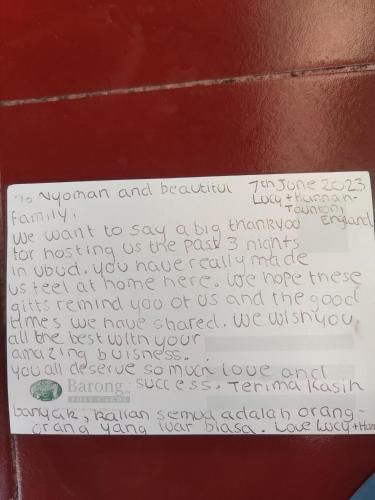 To Nyoman and beautiful
7th June 2023
Lucy + Hannah -
Taunton,
England
family,
We want to say a big thankyou
for hosting us the past 3 nights
in ubud. you have really made
us feel at home here. We hope these
gifts remind you of us and the good
times we have shared. We wish you
all the best with your
amazing buisness.
you all deserve so much love and
success. Terima Kasih
Barong
POST CARDS
banyak, kalian semua adalah orang-
orang yang luar biasa. Love Lucy + Han